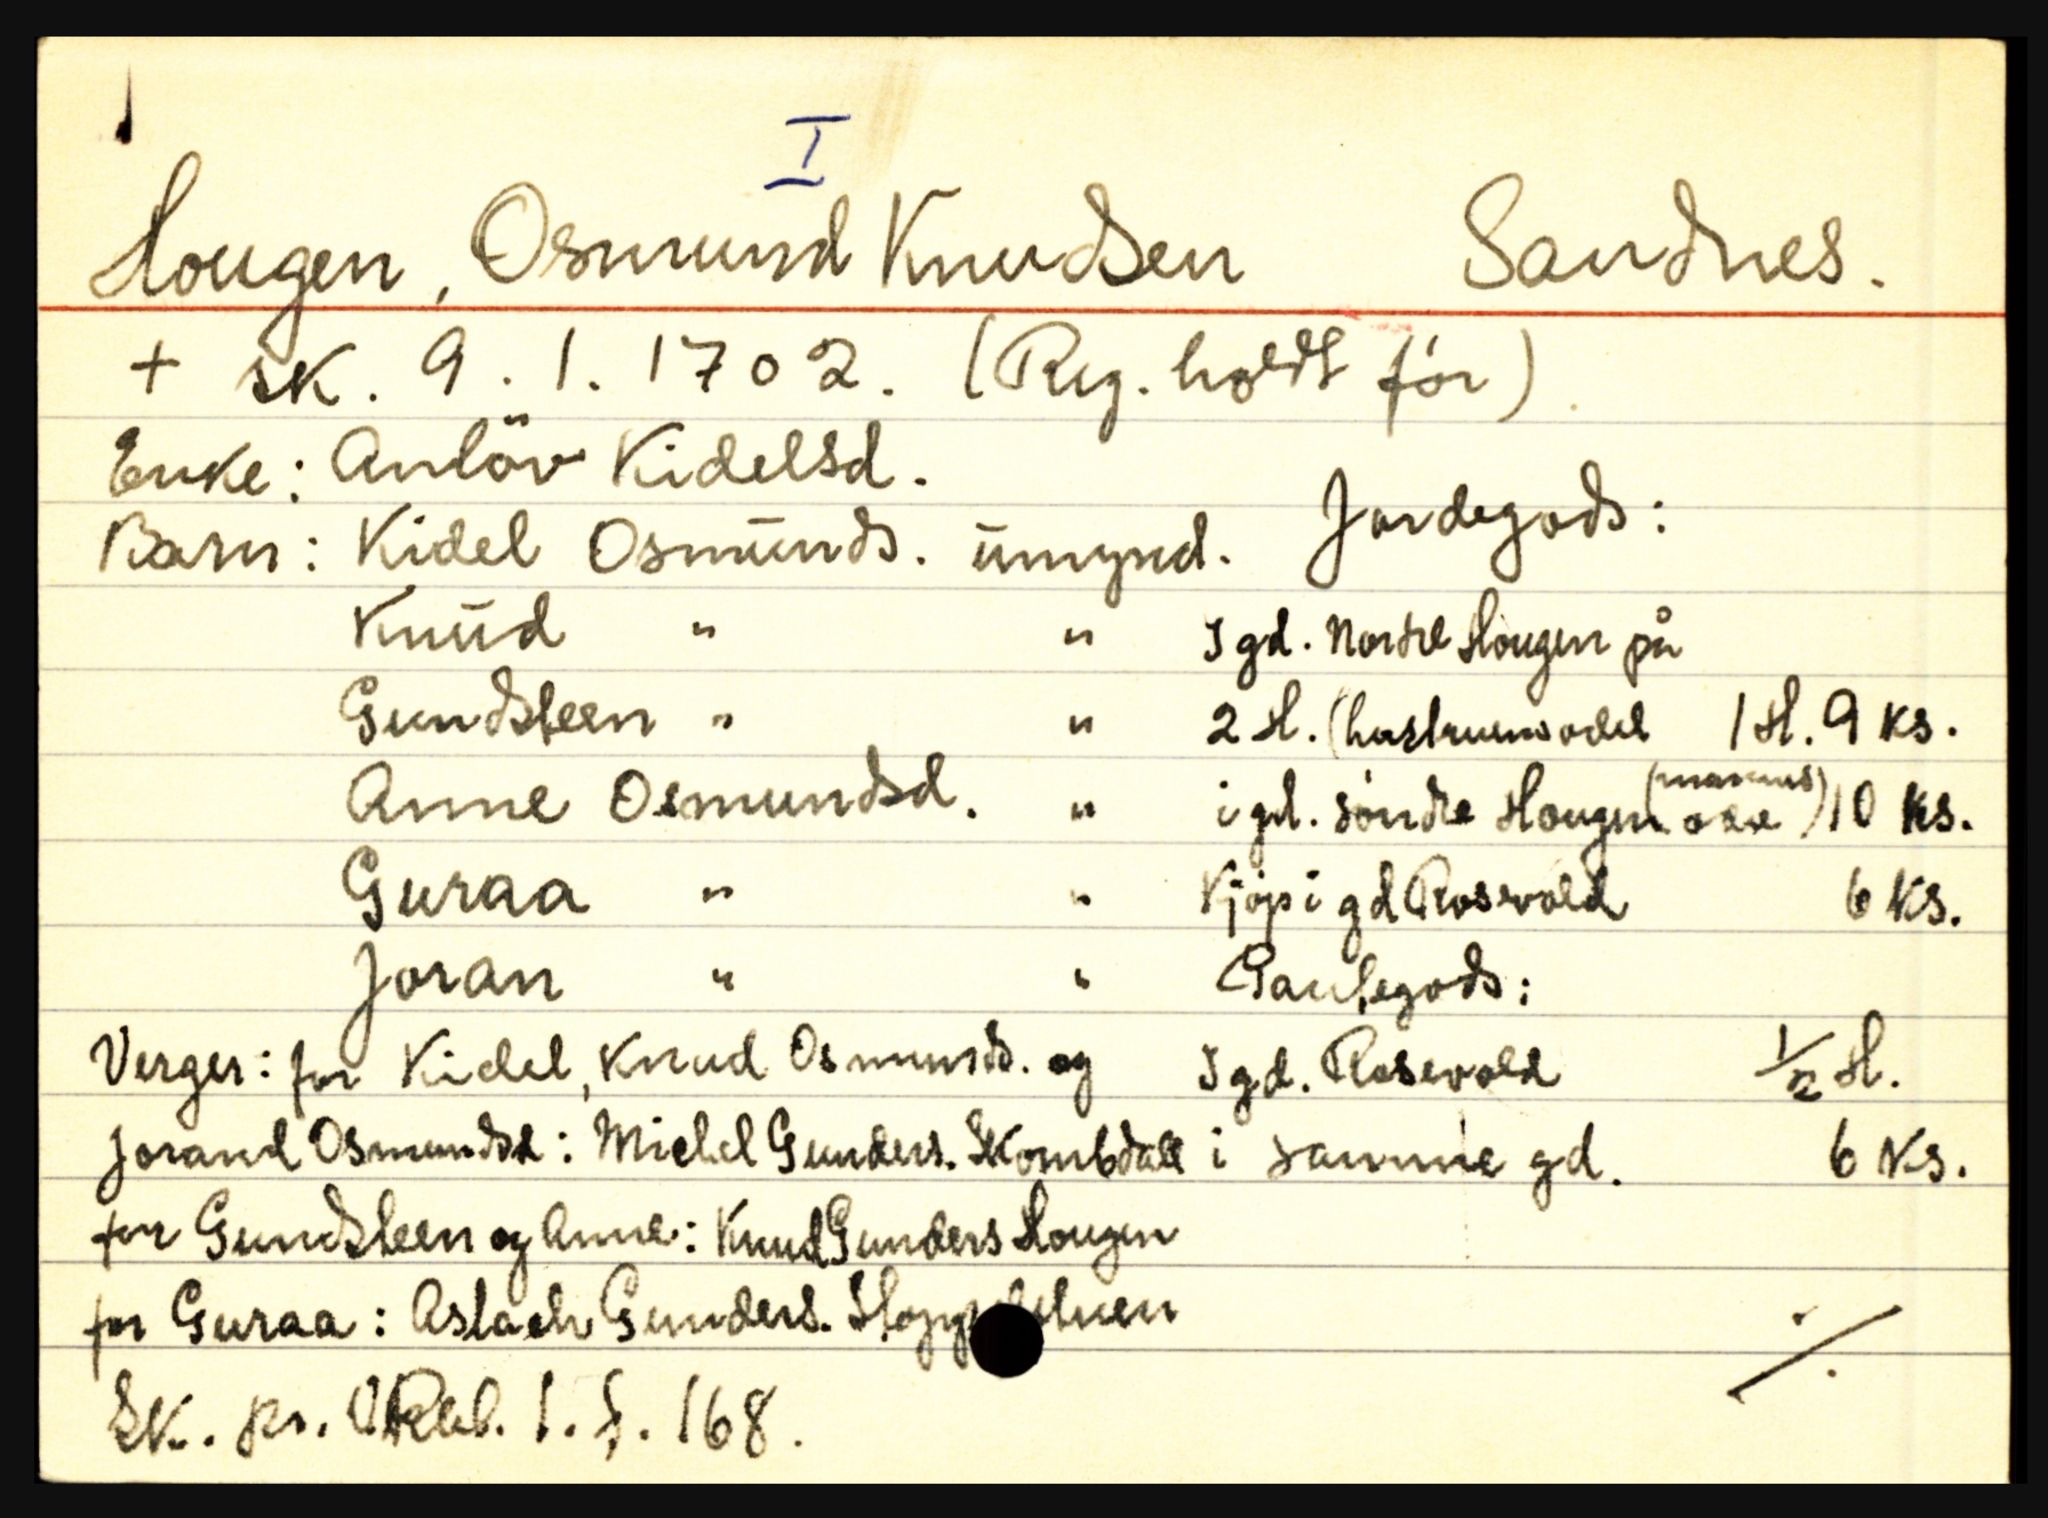 I
Hougen, Osmund Knudsen Sandnes.
+ sk. 9.1.1702. (Reg. holdt før)
Enke: Anlöv Kidelsd.
Barn: Kidel Osmunds. umynd. Jordegods:
Knud " " I gd. Nordre Hougen på
Gundsteen " " 2 H. (hustruens odel 1 H. 9 ks.
Anne Osmundsd. " i gd. söndre Hougen (mannens) 10 ks.
Guraa " " Kjöp i gd Rosevold 6 ks.
Joran " " Pantegods:
Verger: for Kidel, Knud Osmunds. og I gd. Rosevold 1/2 H.
Jorand Osmundsd: Michel Gunders. Skombdall i samme gd. 6 ks.
for Gundsteen og Anne: Knud Gunders Hougen
for Guraa: Aslach Gunders.
Sk. pr. 1. f. 168.